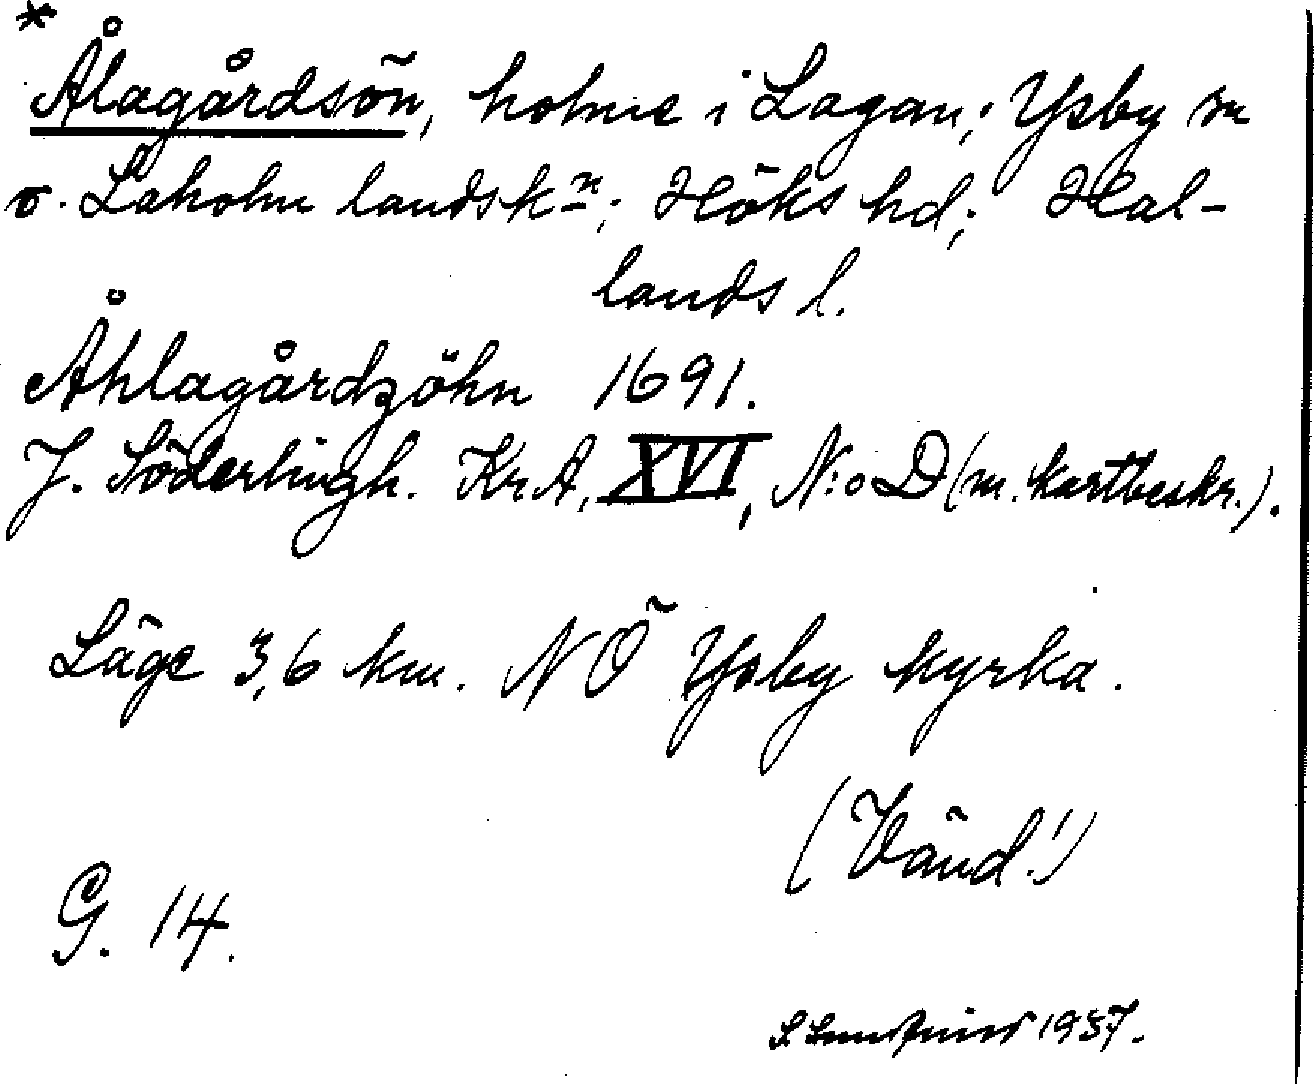 *
Ålagårdsön, holme i Lagan; Ysby sn
o. Laholm landskn; Höks hd; Hal-
lands l.
Åhlagårdzöhn 1691.
J. Söderlingh. Kr.A, XVI, N:o D (m. kartbeskr.).
Läge 3,6 km. NÖ Ysby kyrka.
(Vänd!)
G. 14.
1937.